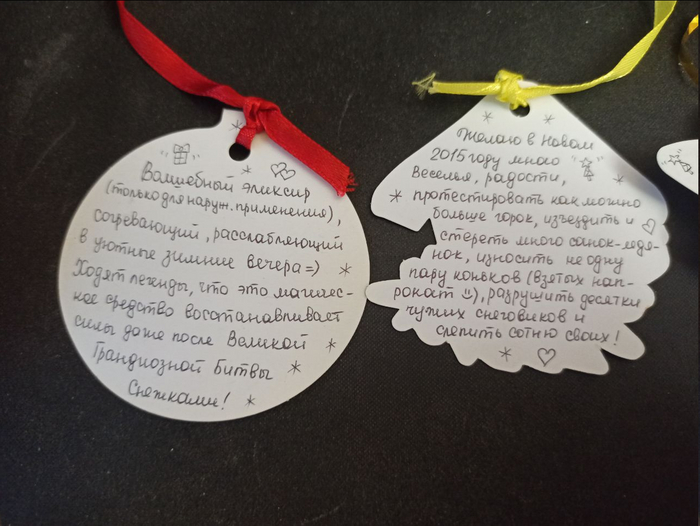 Волшебный эликсир
(только для наруж. применения),
согревающий, расслабляющий
в уютные зимние вечера =)
Ходят легенды, что это магичес-
кое средство восстанавливает
силы даже после Великой
Грандиозной Битвы
Снежками!
Желаю в Новом
2015 году много
веселья, радости,
протестировать как можно
больше горок, изъездить и
стереть много санок-ледя-
нок, износить не одну
пару коньков (взятых нап-
рокат =)), разрушить десятки
чужих снеговиков и
слепить сотню своих!